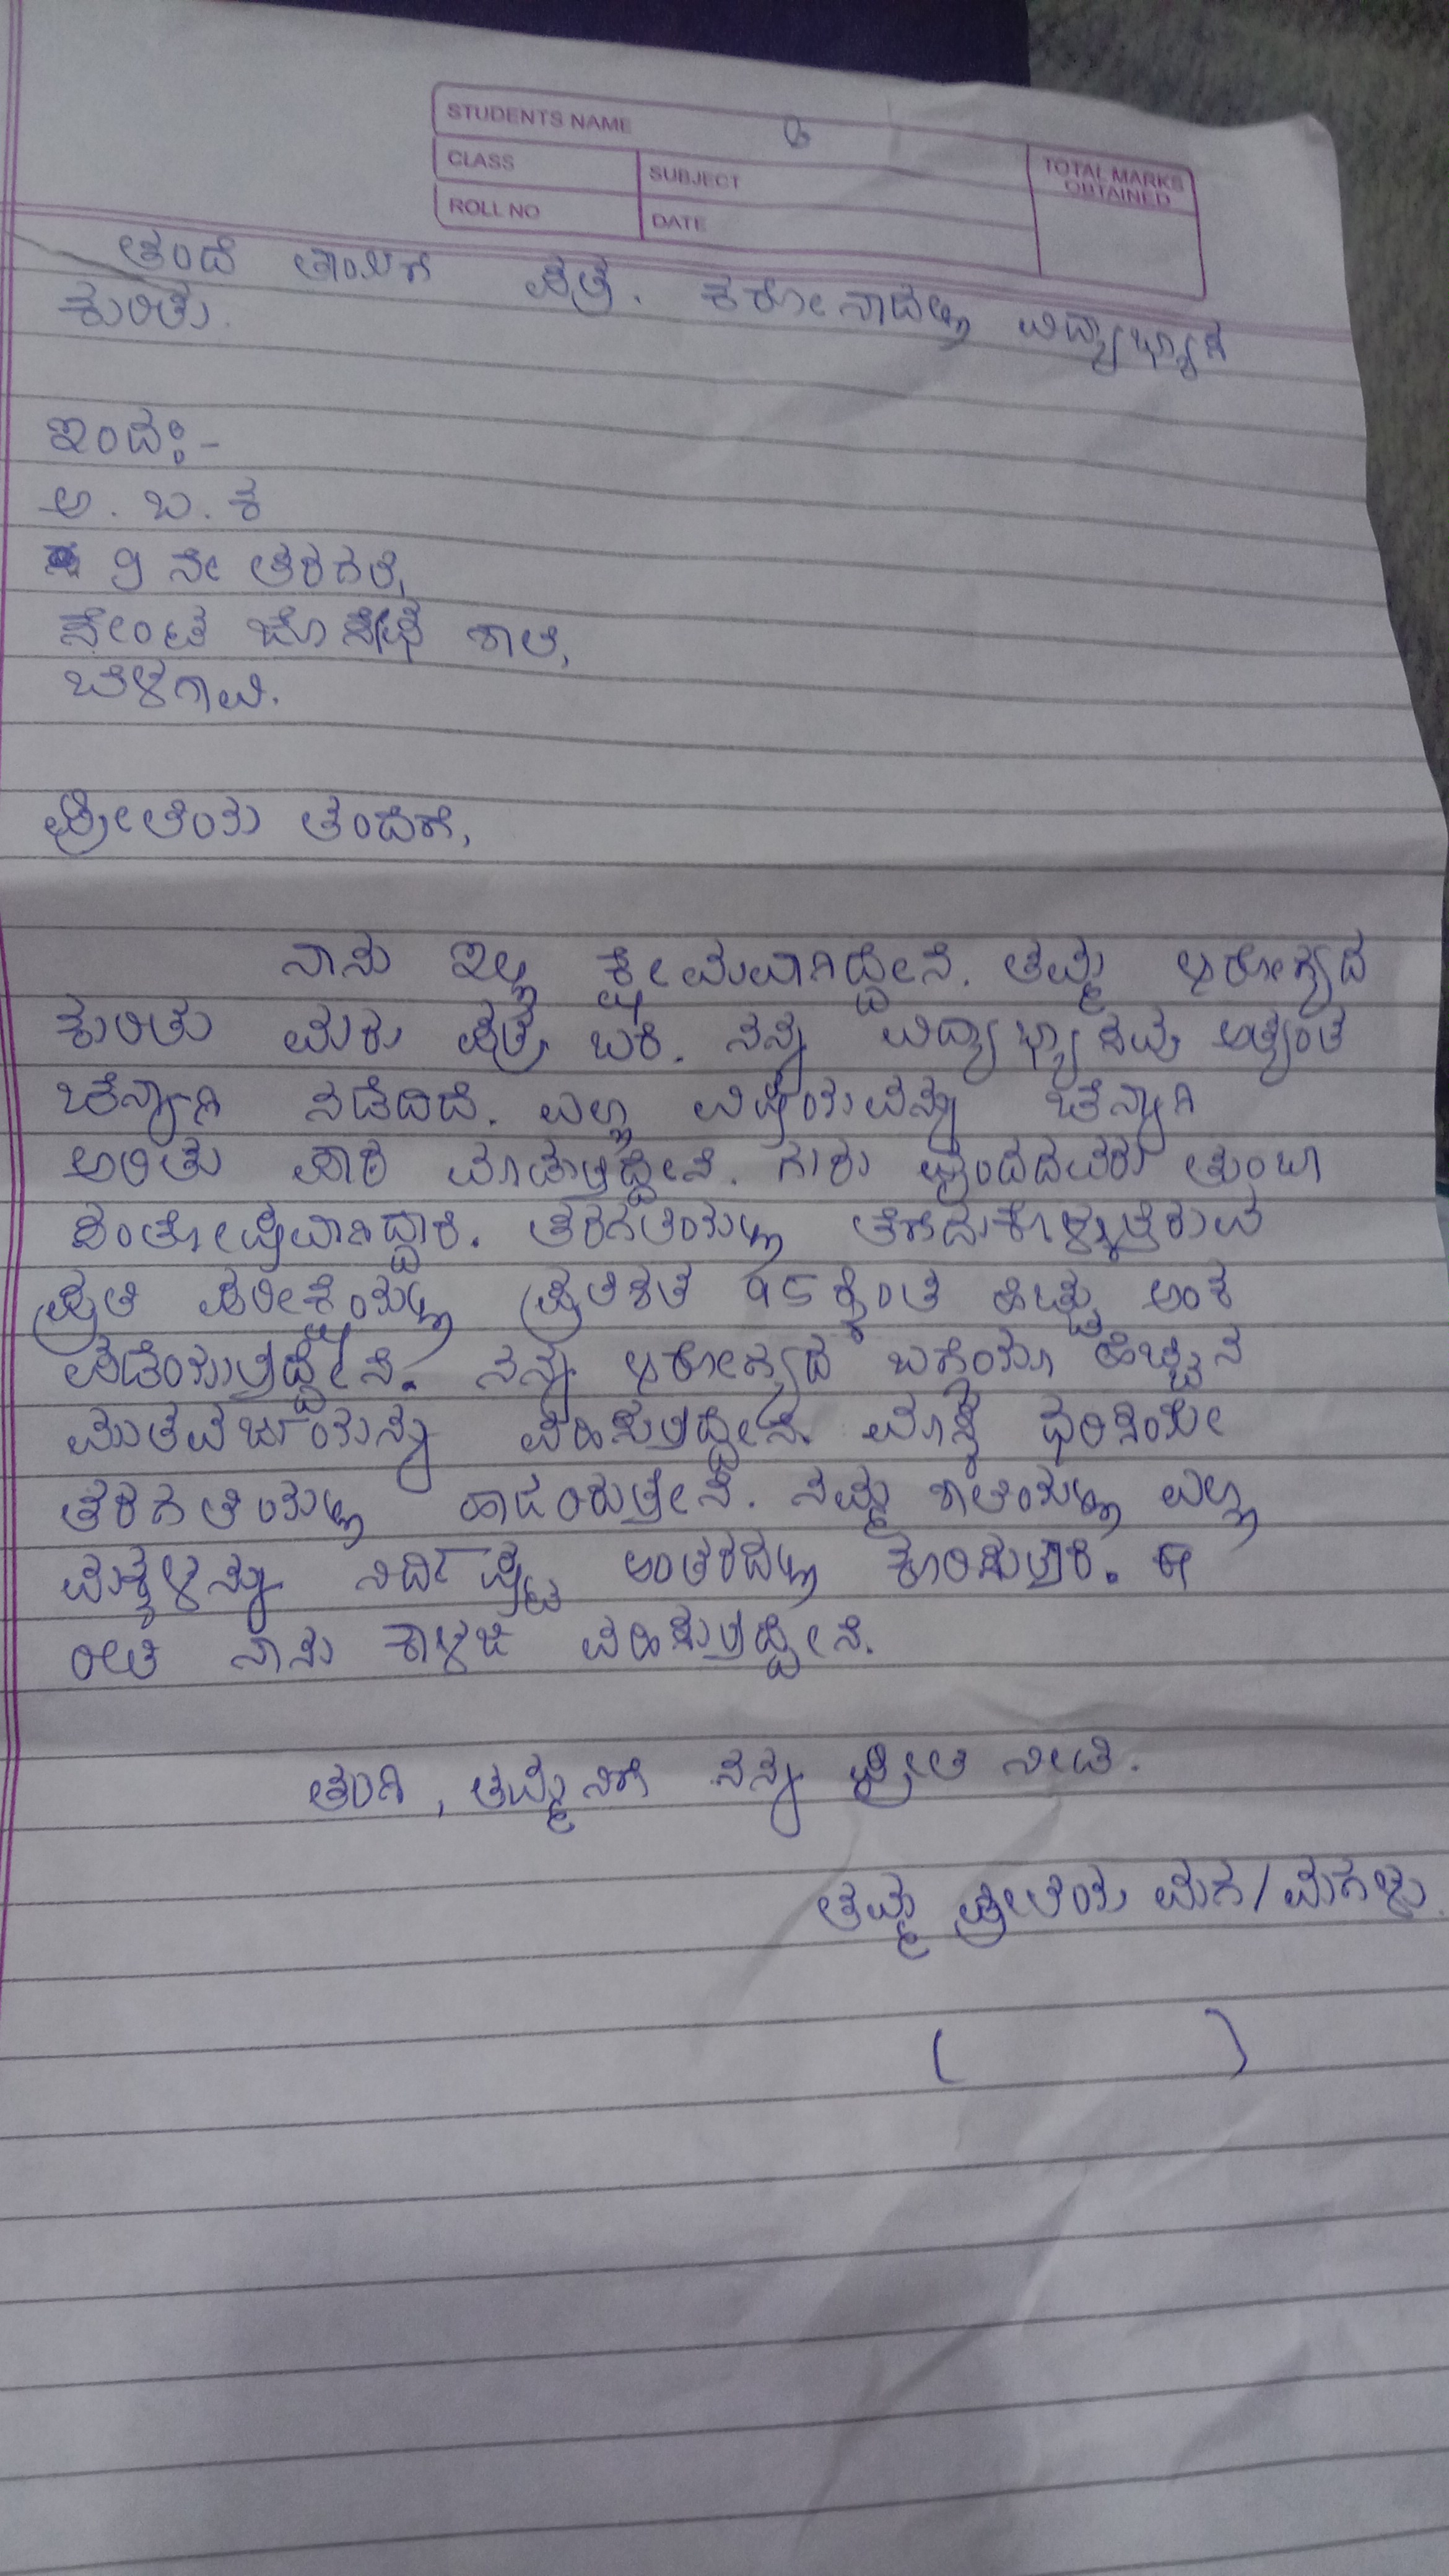 STUDENTS NAME
CLASS SUBJECT TOTAL MARKS OBTAINED
ROLL NO DATE
ತಂದೆ ತಾಯಿಗೆ ಪತ್ರ. ಕರೋನಾದಲ್ಲಿ ವಿದ್ಯಾಭ್ಯಾಸ
ಕುರಿತು.
ಇಂದ:-
ಅ. ಬ. ಕ
೨ ನೇ ತರಗತಿ,
ಸೇಂಟ ಜೋಸೆಫ್ ಶಾಲೆ,
ಬೆಳಗಾವಿ.
ಪ್ರೀತಿಯ ತಂದೆಗೆ,
ನಾನು ಇಲ್ಲಿ ಕ್ಷೇಮವಾಗಿದ್ದೇನೆ. ತಮ್ಮ ಆರೋಗ್ಯದ
ಕುರಿತು ಮರು ಪತ್ರ ಬರೆ. ನನ್ನ ವಿದ್ಯಾಭ್ಯಾಸವು ಅತ್ಯಂತ
ಚೆನ್ನಾಗಿ ನಡೆದಿದೆ. ಎಲ್ಲಾ ವಿಷಯವನ್ನು ಚೆನ್ನಾಗಿ
ಅರಿತು ಪಾಠ ಮಾಡುತ್ತಿದ್ದೇನೆ. ಗುರು ವೃಂದದವರು ತುಂಬಾ
ಸಂತೋಷವಾಗಿದ್ದಾರೆ. ತರಗತಿಯಲ್ಲಿ ತೆಗೆದುಕೊಳ್ಳುತ್ತಿರುವ
ಪ್ರತಿ ಪರೀಕ್ಷೆಯಲ್ಲಿ ಪ್ರತಿಶತ ೪೫ಕ್ಕಿಂತ ಹೆಚ್ಚು ಅಂಕ
ಪಡೆಯುತ್ತಿದ್ದೇನೆ. ನನ್ನ ಆರೋಗ್ಯದ ಬಗ್ಗೆಯೂ ಹೆಚ್ಚಿನ
ಮುತವರ್ಜಿಯನ್ನು ವಹಿಸುತ್ತಿದ್ದೇನೆ. ಮಾಸ್ಕ ಧರಿಸಿಯೇ
ತರಗತಿಯಲ್ಲಿ ಹಾಜರಿರುತ್ತೇನೆ. ನಮ್ಮ ಶಾಲೆಯಲ್ಲಿ ಎಲ್ಲಾ
ಮಕ್ಕಳನ್ನು ನಿರ್ದಿಷ್ಟ ಅಂತರದಲ್ಲಿ ಕೂರಿಸುತ್ತಾರೆ. ಈ
ರೀತಿ ನಾನು ಕಾಳಜಿ ವಹಿಸುತ್ತಿದ್ದೇನೆ.
ತಂಗಿ, ತಮ್ಮನಿಗೆ ನನ್ನ ಪ್ರೀತಿ ನೀಡಿ.
ತಮ್ಮ ಪ್ರೀತಿಯ ಮಗ/ಮಗಳು.
( )